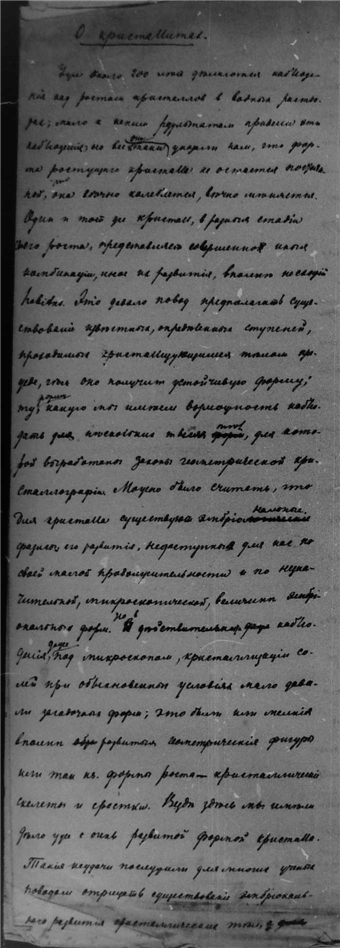 О кристаллитах.
Уже около 200 лѣтъ дѣлаются наблюде-
нія надъ ростомъ кристалловъ въ водныхъ раство-
рахъ; мало къ какимъ результатамъ привели эти
наблюденія; но всѣ они учили насъ, что фор-
ма ростущаго кристалла не остается постоян-
ной, что она вѣчно колеблется, вѣчно мѣняется.
Одинъ и тотъ же кристаллъ, въ разныя стадіи
своего роста, представляетъ совершенно иныя
комбинаціи, иное их развитіе, вполнѣ несходный
habitus. Это давало поводъ предполагать суще-
ствованіе извѣстныхъ, опредѣленныхъ ступеней,
проходимыхъ кристаллизующимся тѣломъ пре-
жде, чѣмъ оно получитъ устойчивую форму;
ту, какую мы имѣемъ возможность наблю-
дать для тѣлъ, для кото-
рой выработаны законы геометрической кри-
сталлографіи. Можно было считать, что
для кристалла существуютъ эмбріональные
фазисы его развитія, недоступныя для насъ по
своей малой продолжительности и по незна-
чительной, микроскопической, величинѣ эмбрі-
ональныхъ формъ. Но въ дѣйствительности наблю-
денія, даже подъ микроскопомъ, кристаллизаціи со-
лей при обыкновенныхъ условіяхъ мало дава-
ли загадочныхъ формъ; это были или мелкія
вполнѣ развитыя геометрическія фигуры
или такъ наз. формы роста — кристаллическіе
скелеты и сростки. Вездѣ здѣсь мы имѣли
дѣло уже съ очень развитой формой кристалла.
Такія неудачи послужили для многихъ ученыхъ
поводомъ отрицать существованіе эмбріональ-
наго развитія кристаллическихъ